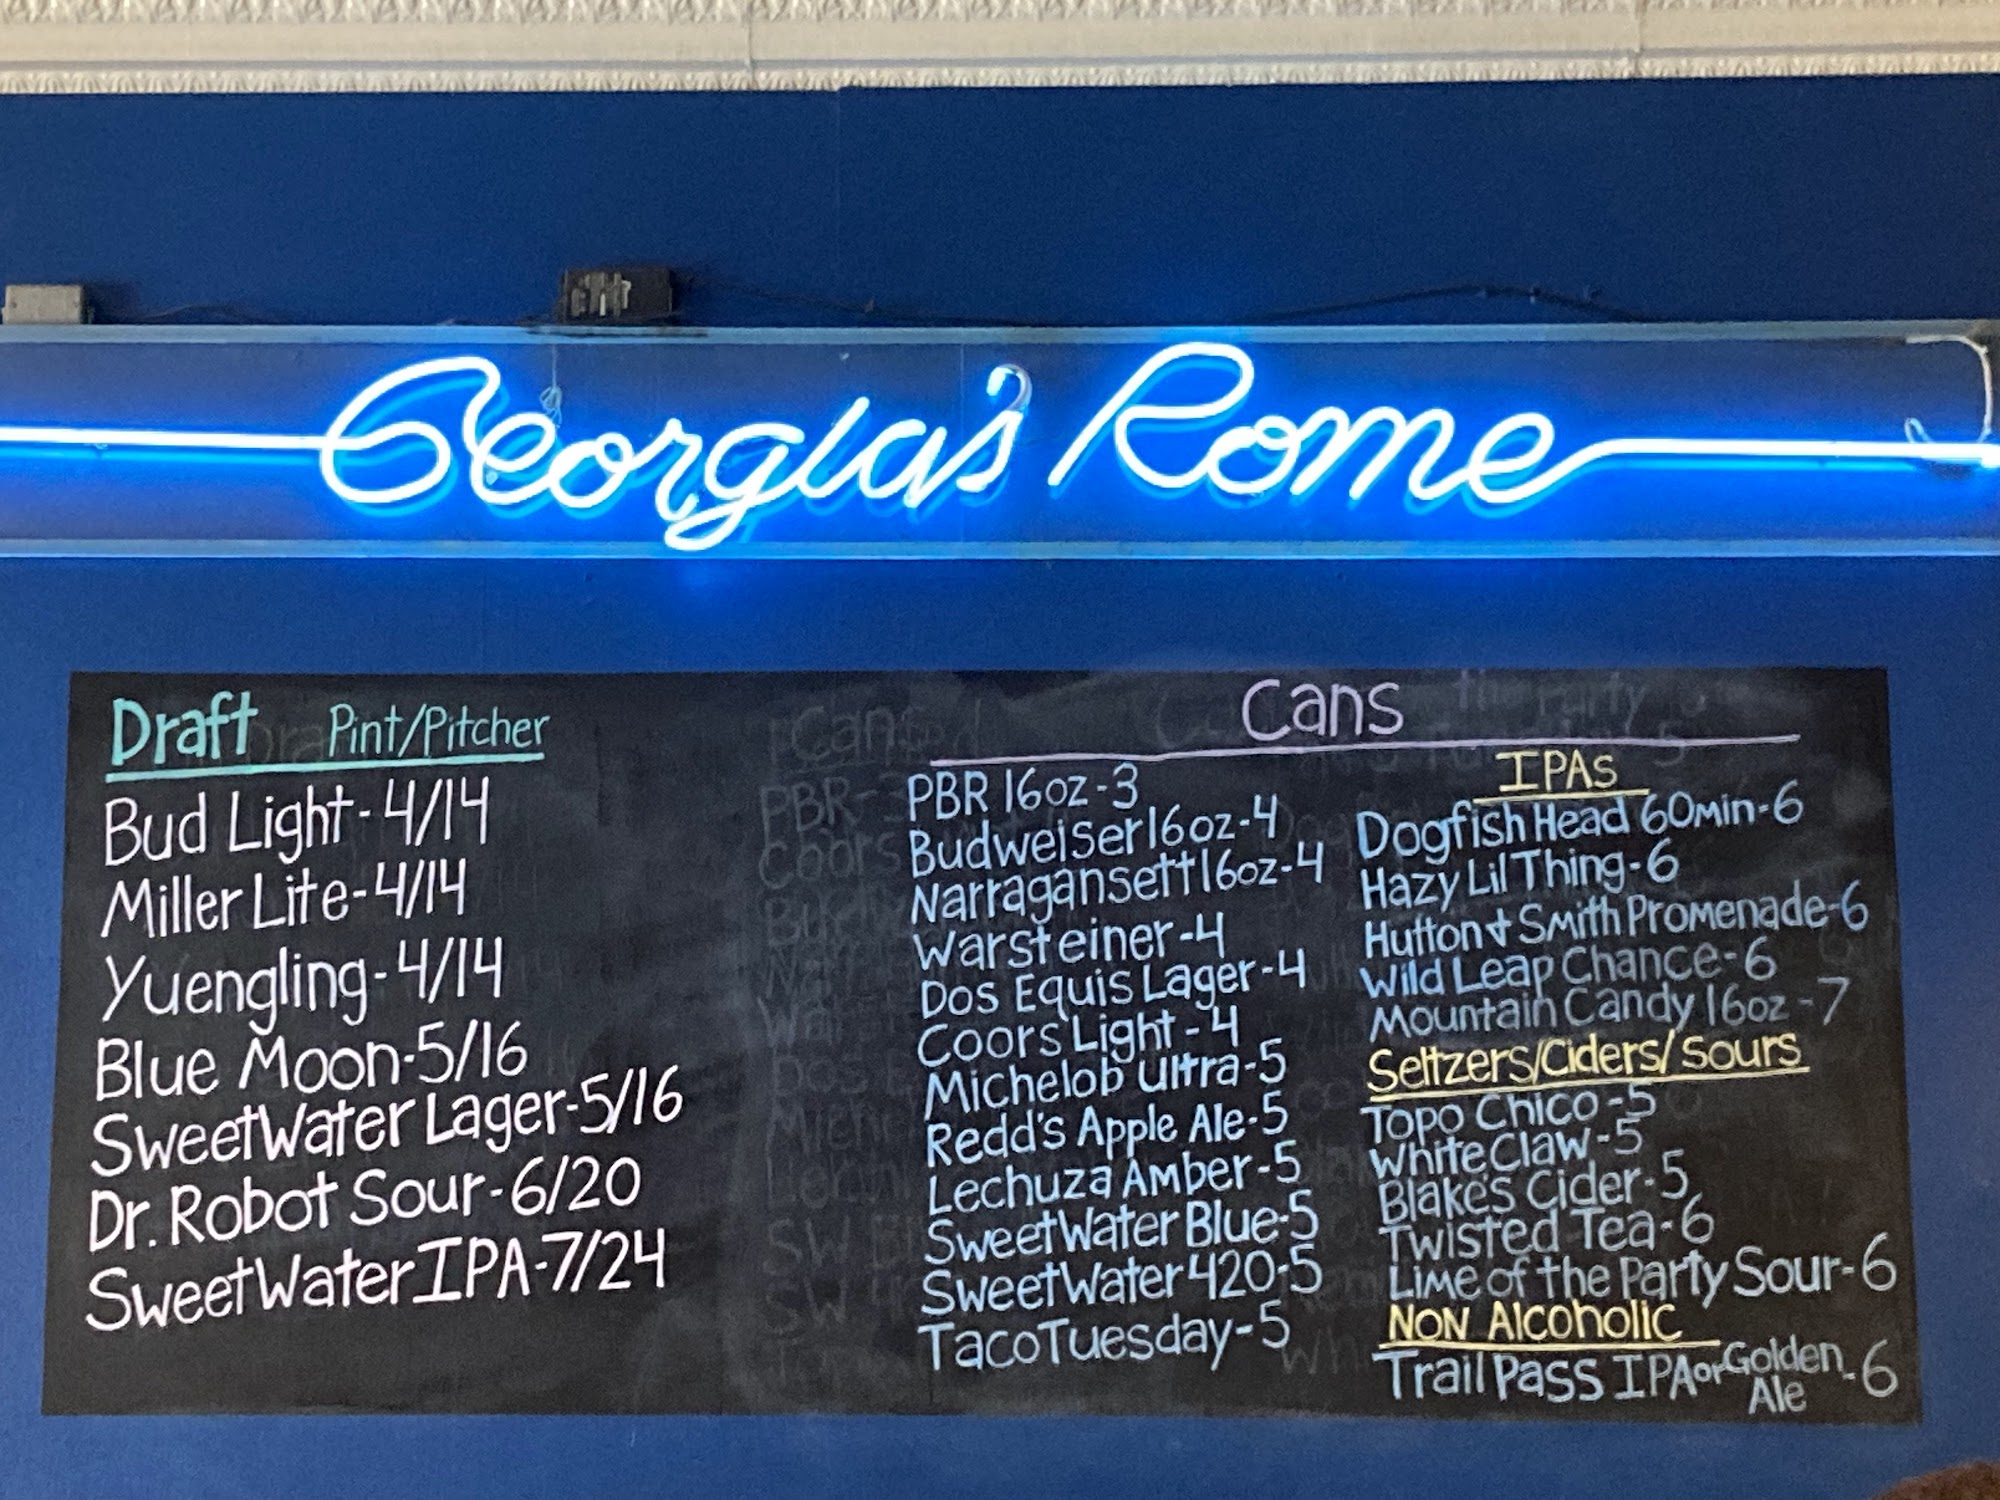 Georgia's Rome
Draft Pint/Pitcher
Bud Light-4/14
Miller Lite-4/14
Yuengling-4/14
Blue Moon-5/16
SweetWater Lager-5/16
Dr. Robot Sour-6/20
SweetWater IPA-7/24
Cans
PBR 16oz-3
Budweiser 16oz-4
Narragansett 16oz-4
Warsteiner-4
Dos Equis Lager-4
Coors Light-4
Michelob Ultra-5
Redd's Apple Ale-5
Lechuza Amber-5
SweetWater Blue-5
SweetWater 420-5
Taco Tuesday-5
IPAs
Dogfish Head 60min-6
Hazy Lil Thing-6
Hutton & Smith Promenade-6
Wild Leap Chance-6
Mountain Candy 16oz-7
Seltzers/Ciders/Sours
Topo Chico-5
White Claw-5
Blake's Cider-5
Twisted Tea-6
Lime of the Party Sour-6
Non Alcoholic
Trail Pass IPA or Golden Ale-6